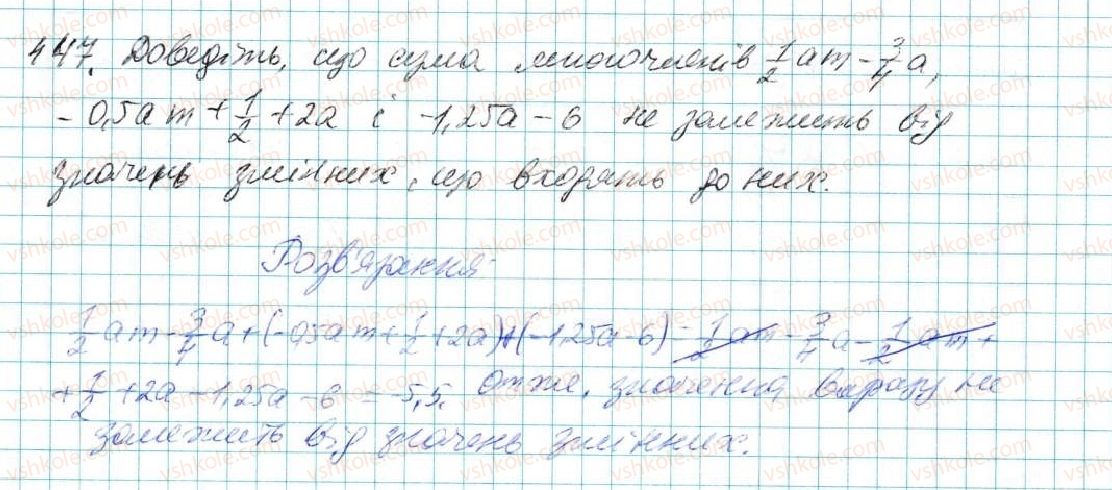 447. Доведіть, що сума многочленів 1/2 am - 3/4 a,
- 0,5am + 1/2 + 2a і -1,25a - 6 не залежить від
значень змінних, що входять до них.
Розв'язання
1/2 am - 3/4 a + (-0,5am + 1/2 + 2a) + (-1,25a - 6) = 1/2 am - 3/4 a - 1/2 am +
+ 1/2 + 2a - 1,25a - 6 = -5,5. Отже, значення виразу не
залежить від значень змінних.